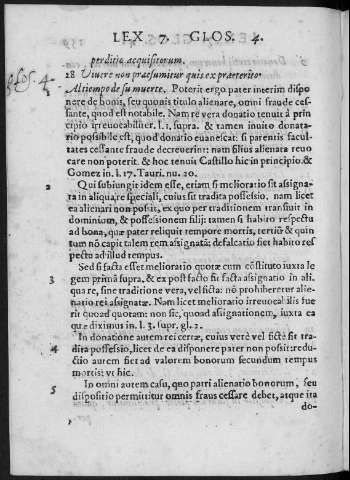 LEX 7. GLOS. 4.
perditio acquisitorum.
18 Viuere non præsumitur quis ex præterito.
glos. 4.
Al tiempo de su muerte. Poterit ergo pater interim dispo
nere de bonis, seu quouis titulo alienare, omni fraude ces-
sante, quod est notabile. Nam re vera donatio tenuit à prin
cipio irreuocabiliter. l. 1. supra. & tamen inuito donata-
rio possibile est, quod donatio euanescat: si parentis facul-
tates cessante fraude decreuerint: nam filius alienata reuo
care non poterit. & hoc tenuit Castillo hic in principio. &
Gomez in l. 17. Tauri. nu. 20.
2 Qui subiungit idem esse, etiam si melioratio sit assigna-
ta in aliqua re speciali, cuius sit tradita possessio. nam licet
ea alienari non possit, ex quo per traditionem transiuit in
dominium, & possessionem filij: tamen si habito respectu
ad bona, quæ pater reliquit tempore mortis, tertiũ & quin
tum nõ capit talem rem assignatã: defalcatio fiet habito res
pectu ad illud tempus.
3 Sed si facta esset melioratio quotæ cum cõstituto iuxta le
gem primã supra, & ex post facto sit facta assignatio in ali.
qua re, sine traditione vera, vel ficta: nõ prohiberetur alie-
natio rei assignatæ. Nam licet melioratio irreuocabilis fue
rit quoad quotam: non sic, quoad assignationem, iuxta ea
quæ diximus in. l. 3. supr. gl. 2.
4 In donatione autem rei certæ, cuius verè vel fictè sit tra-
dita possessio, licet de ea disponere pater non possit: redu-
ctio autem fiet ad valorem bonorum secundum tempus
mortis: vt hic.
5 In omni autem casu, quo patri alienatio bonorum, seu
dispositio permittitur omnis fraus cessare debet, atque ita
do-